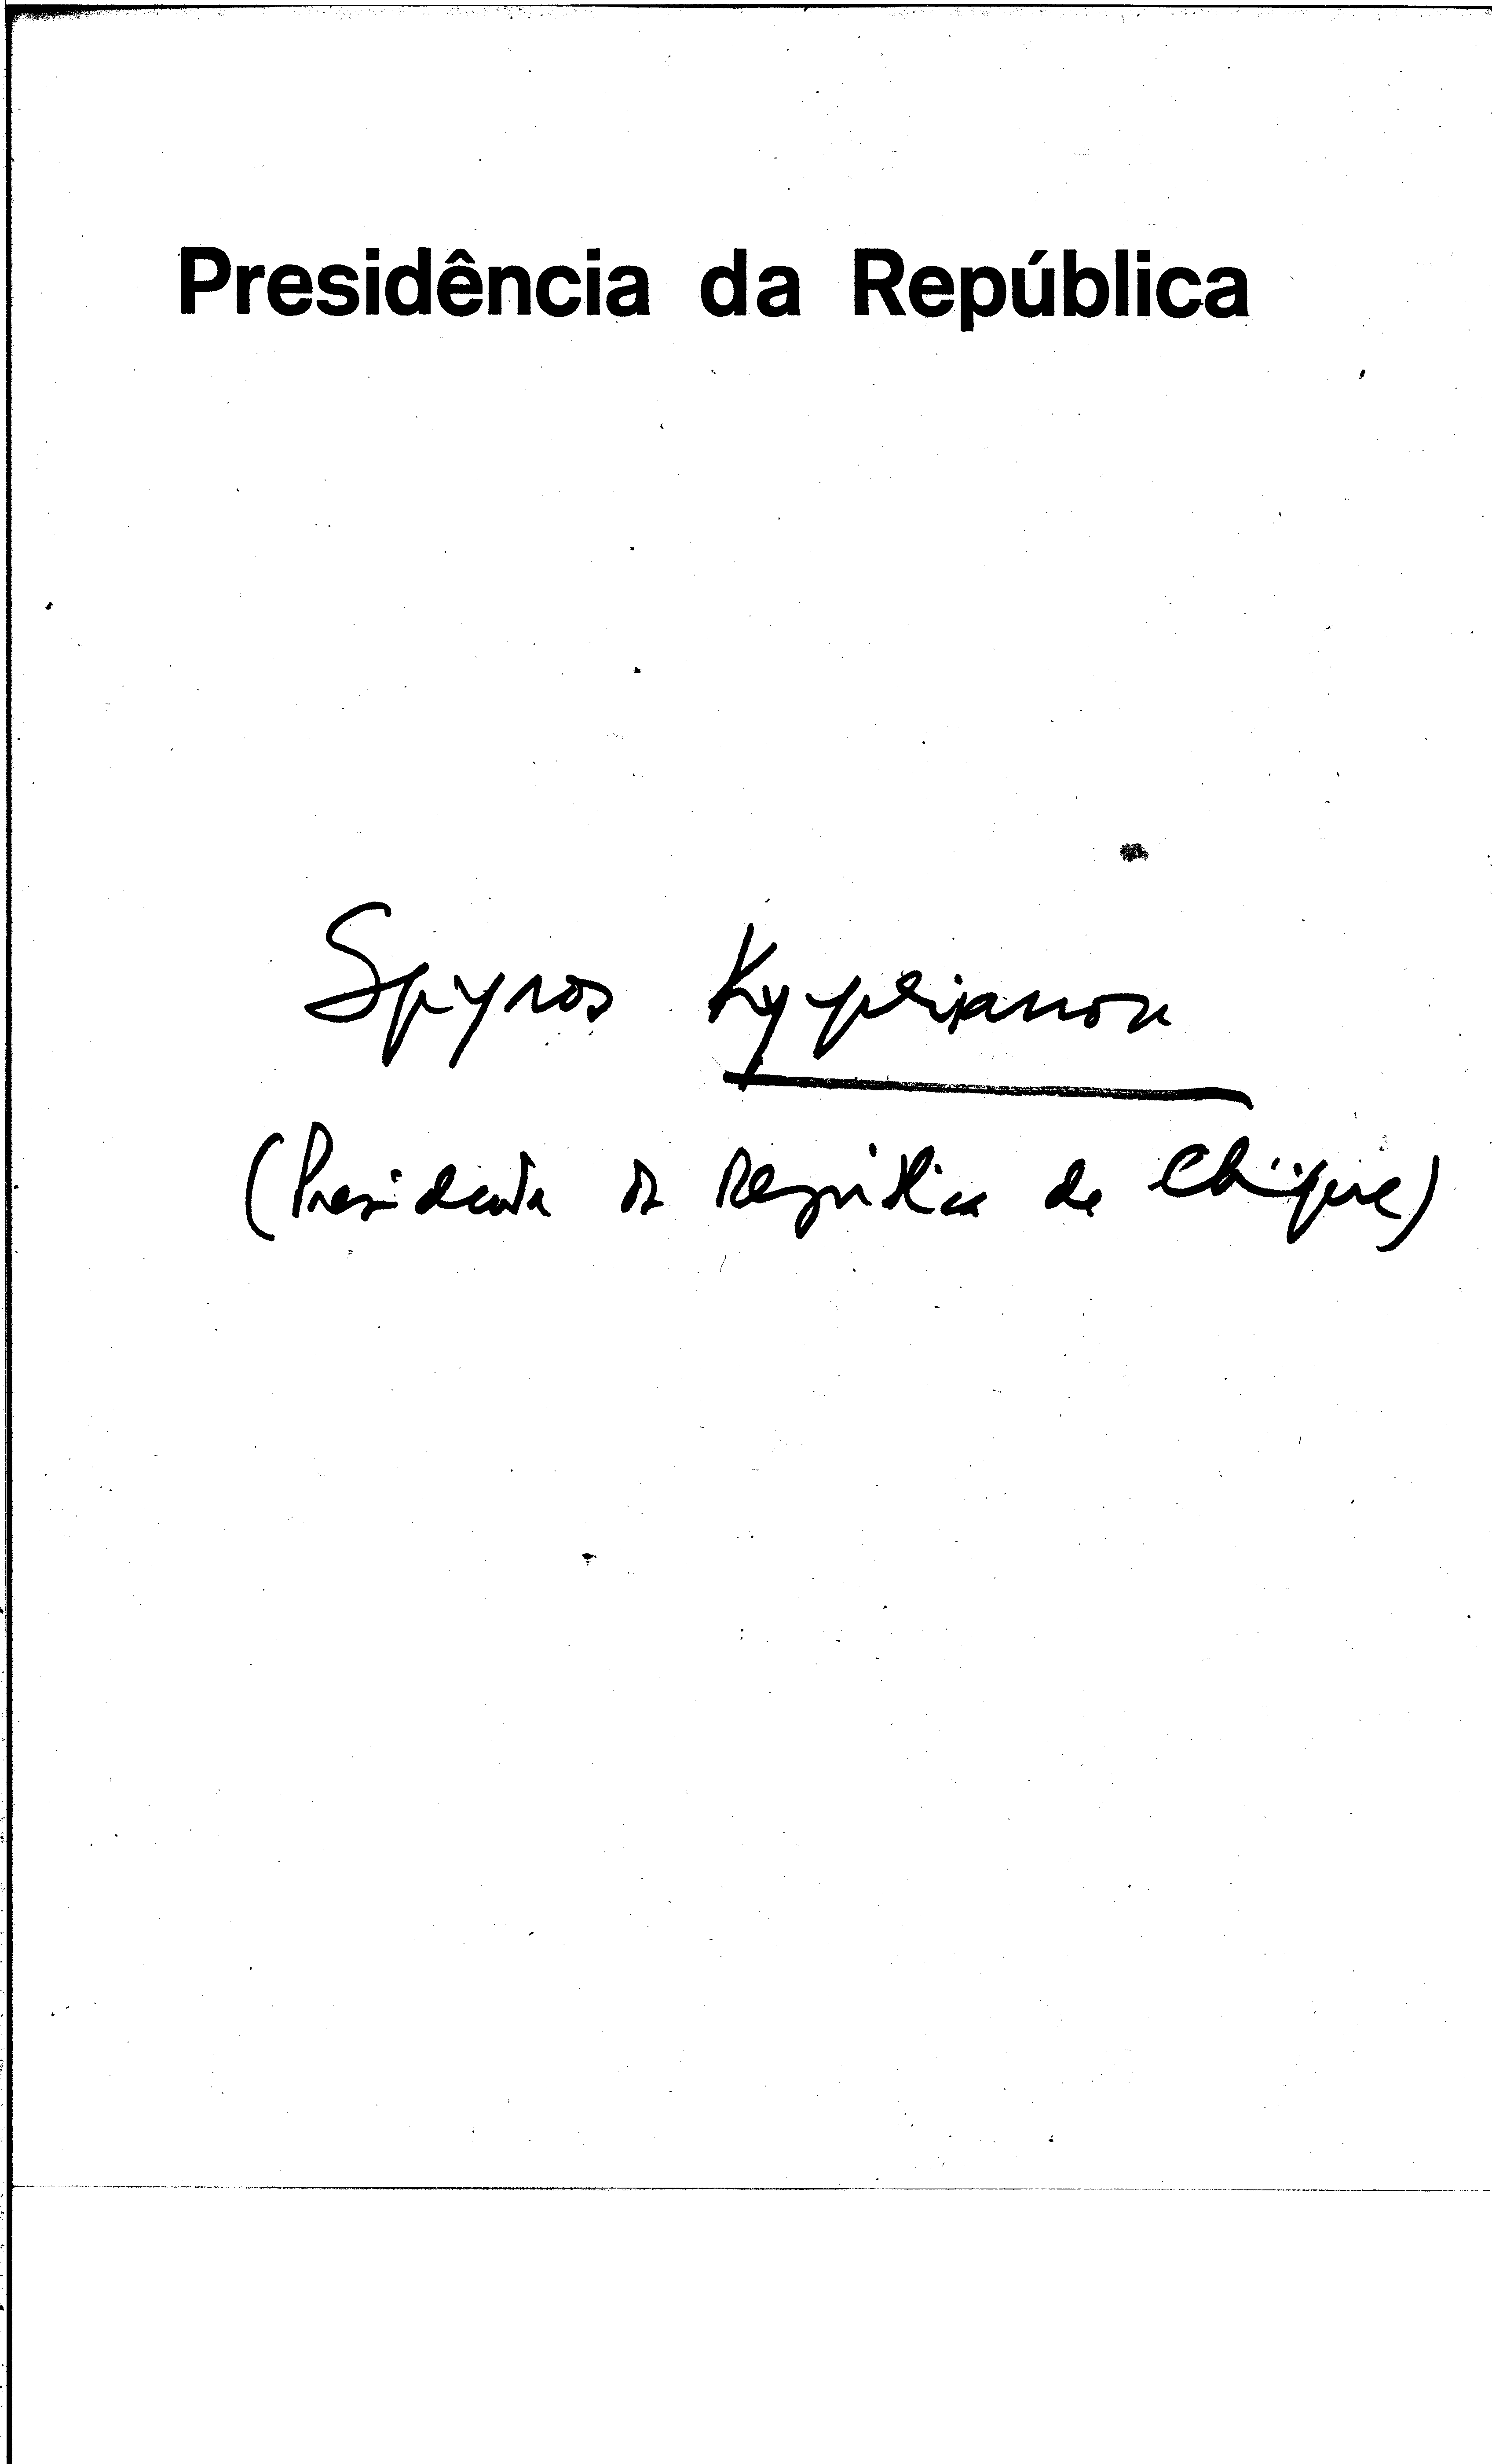 Presidência da República
Spyros Kyprianou
(Presidente da República de Chipre)